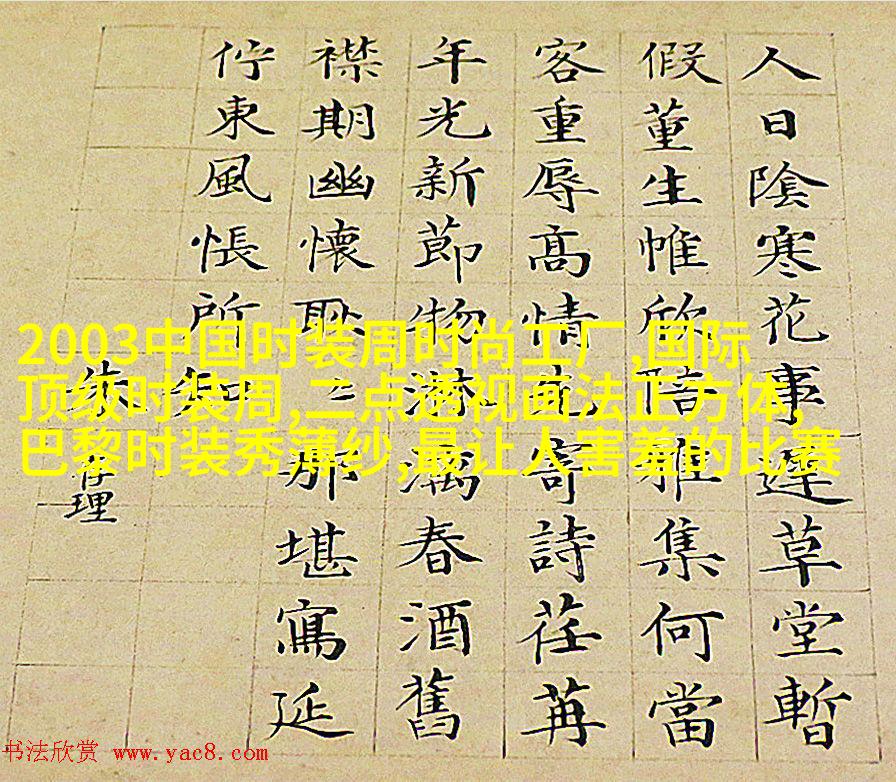 人日陰寒花事遲草堂暫
假董生帷欣陪雅集何當
客重辱高情寄詩荏苒
年光新節物淋漓春酒舊
襟期幽懷耿〻那堪寫延
佇東風悵所知
朱存理
2003中国时装周时尚工厂,国际
顶级时装周,二点透视画法正方体,
巴黎时装秀薄纱,最让人害羞的比赛
书法欣赏 www.yac8.com